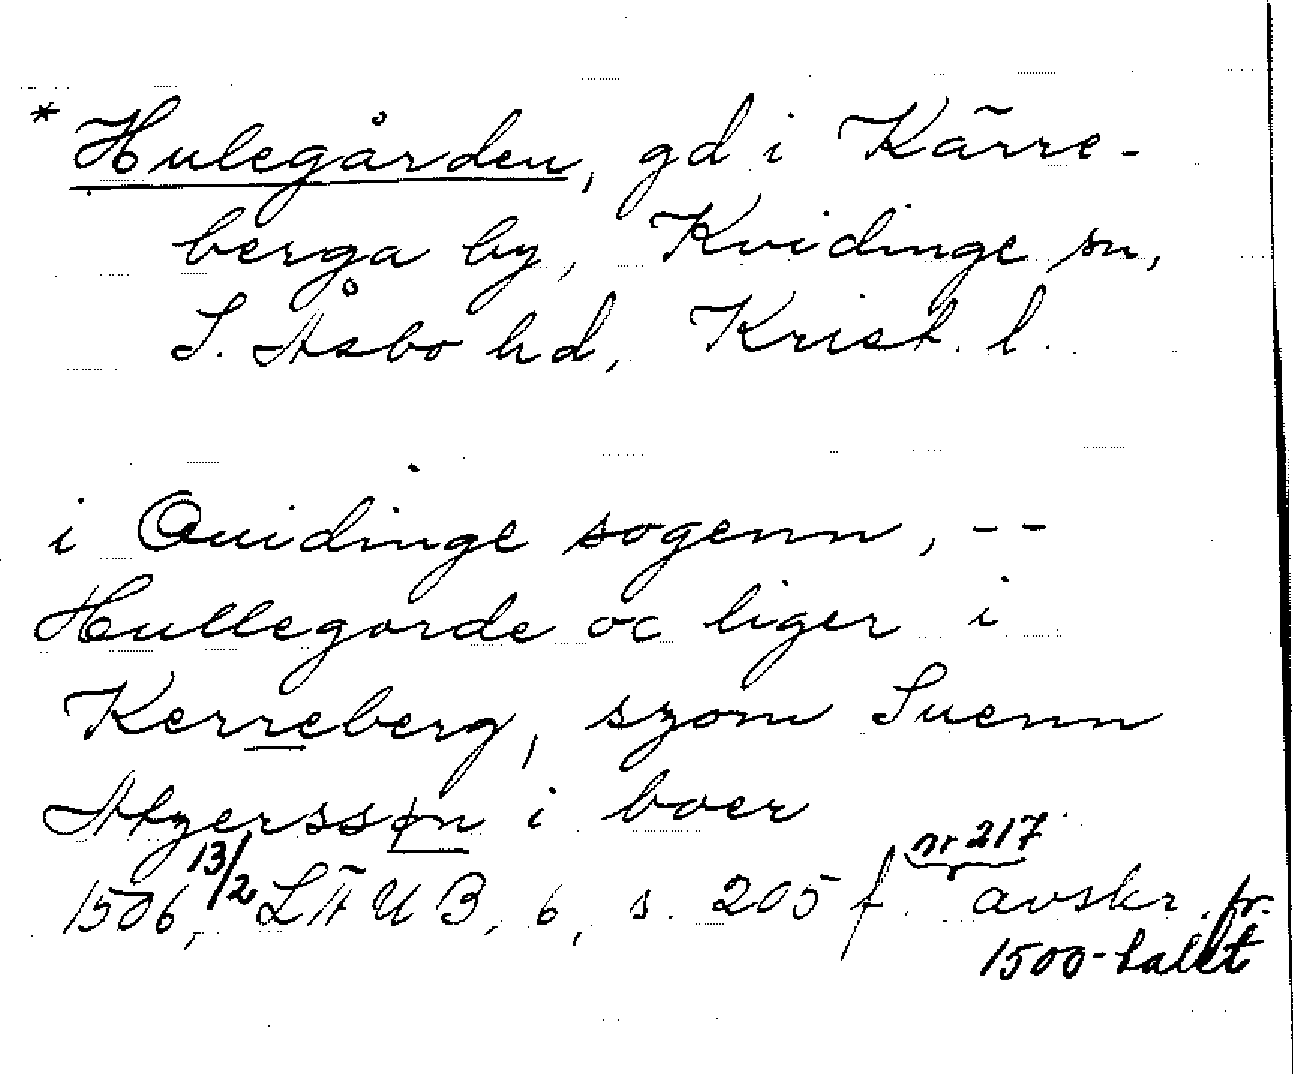 * Hulegården, gd i Kärre-
berga by, Kvidinge sn,
S. Åsbo hd, Krist. l.
i Quidinge sogenn, --
Hullegorde oc liger i
Kerreberg, szom Suenn
Atzerssøn i boer
1506, 13/2 LÄUB, 6, s. 205 f. nr 217 avskr. fr.
1500-talet